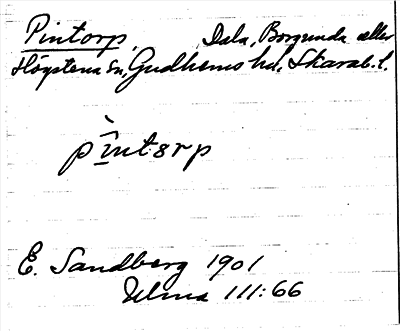 Pintorp, Dala, Borgunda eller
Högstena sn, Gudhems hd. Skarab. l.
pìntɔrp
E. Sandberg 1901
Ulma 111:66